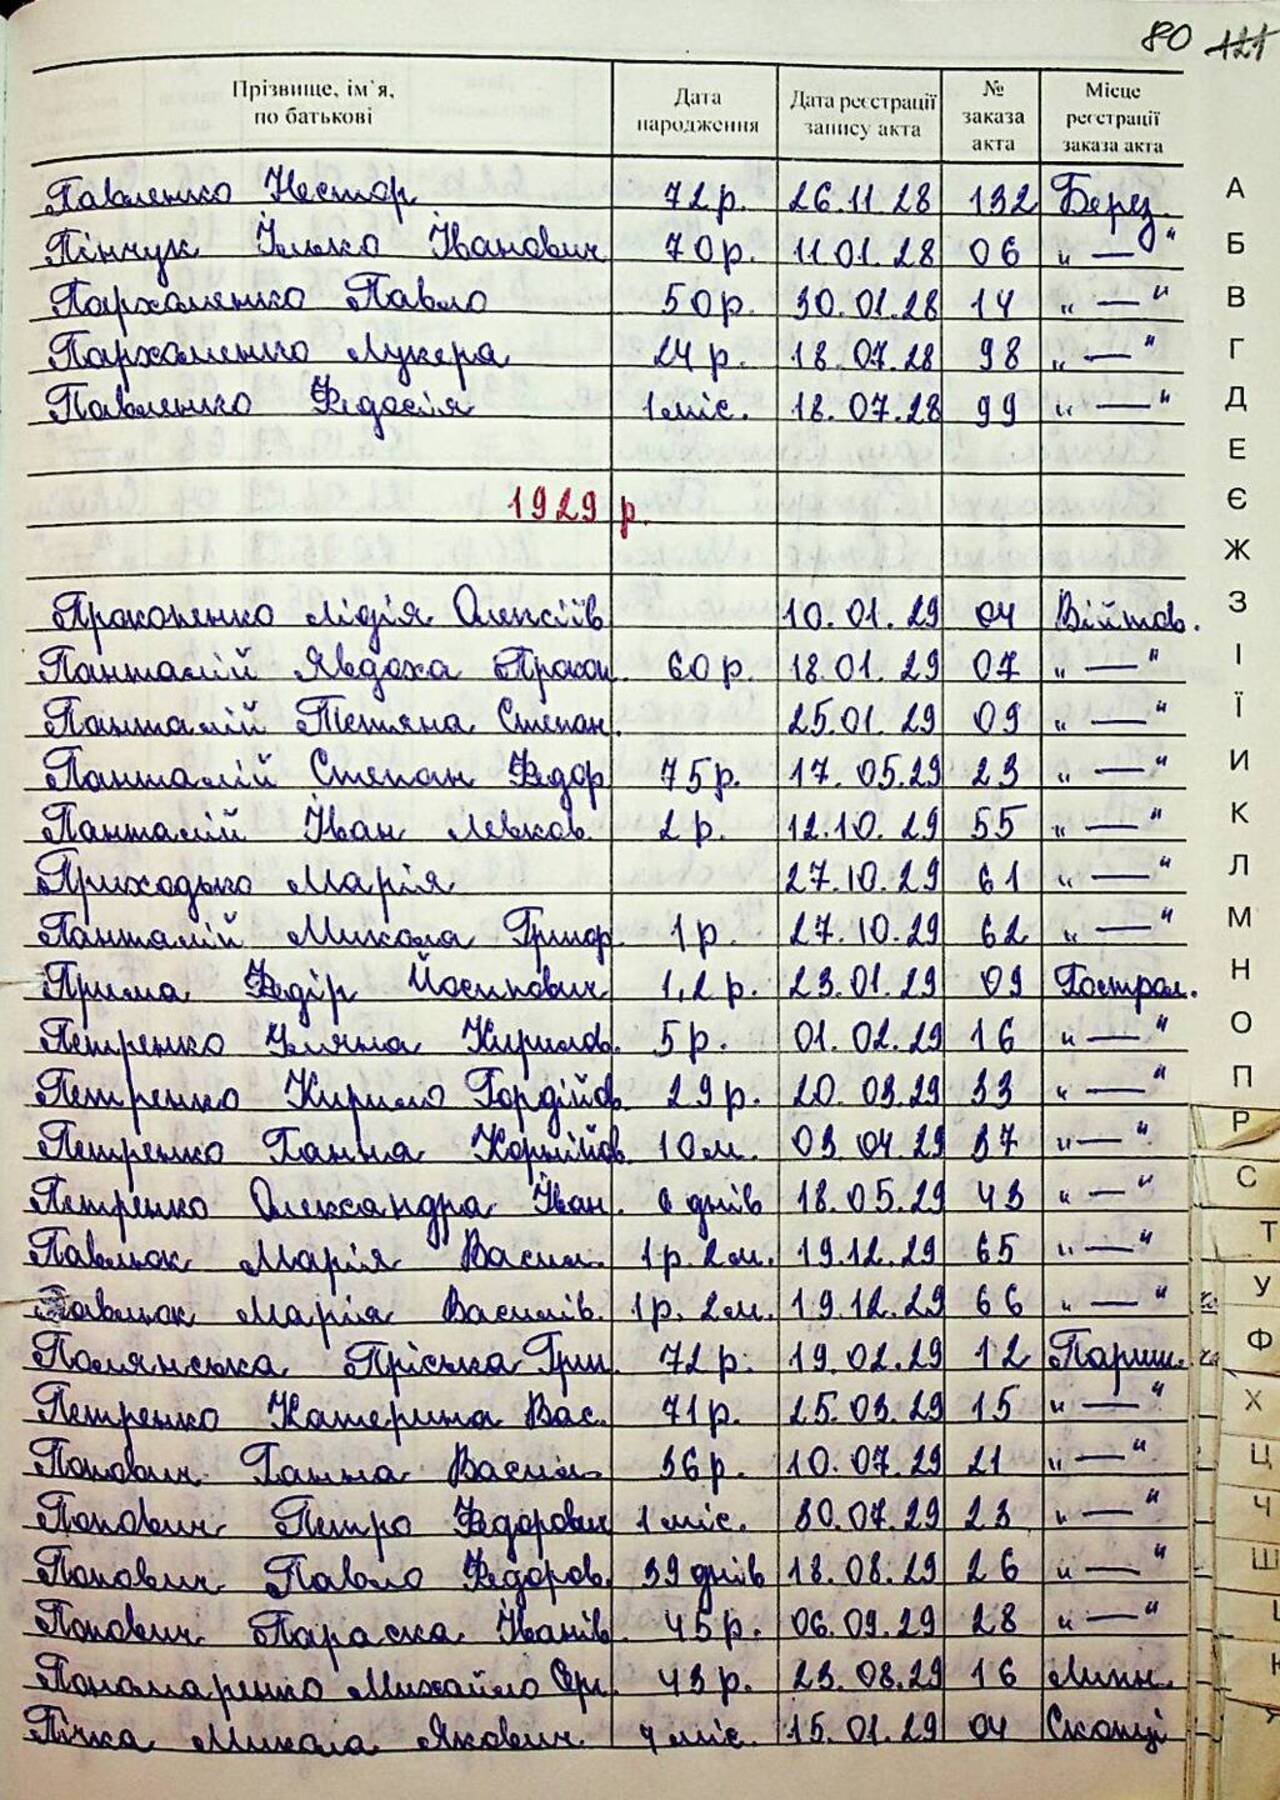 80 121
Прізвище, ім'я, по батькові | Дата народження | Дата реєстрації запису акта | № заказа акта | Місце реєстрації заказа акта
Павленко Нестор 72 р. 26.11.28 132 Берез.
Пінчук Ілько Іванович 70 р. 11.01.28 06 „ — "
Пархоменко Павло 50 р. 30.01.28 14 „ — "
Пархоменко Лукера 24 р. 18.07.28 98 „ — "
Павленко Федосія 1 міс. 18.07.28 99 „ — "
1929 р.
Прокопенко Лідія Олексіїв 10.01.29 04 Війтов.
Панталій Явдоха Прокоп. 60 р. 18.01.29 07 „ — "
Панталій Тетяна Степан. 25.01.29 09 „ — "
Панталій Степан Федор 75 р. 17.05.29 23 „ — "
Панталій Іван Левков. 2 р. 12.10.29 55 „ — "
Приходько Марія 27.10.29 61 „ — "
Панталій Микола Григор. 1 р. 27.10.29 62 „ — "
Прима Федір Йосипович 1,2 р. 23.01.29 09 Гострол.
Петренко Уляна Кирилов. 5 р. 01.02.29 16 „ — "
Петренко Кирило Гордійов. 29 р. 20.03.29 33 „ — "
Петренко Ганна Корнійов. 10 м. 03.04.29 37 „ — "
Петренко Олександра Іван. 6 днів 18.05.29 43 „ — "
Павлюк Марія Васил. 1 р. 2 м. 19.12.29 65 „ — "
Павлюк Марія Василів. 1 р. 2 м. 19.12.29 66 „ — "
Полянська Пріська Григ. 72 р. 19.02.29 12 Париш.
Петренко Катерина Вас. 71 р. 25.03.29 15 „ — "
Попович Ганна Васил. 36 р. 10.07.29 21 „ — "
Попович Петро Федорович 1 міс. 30.07.29 23 „ — "
Попович Павло Федоров. 39 днів 18.08.29 26 „ — "
Попович Параска Іванів. 45 р. 06.09.29 28 „ — "
Пономаренко Михайло 43 р. 23.08.29 16 Липн.
Пічка Микола Якович. 4 міс. 15.01.29 04 Скопці
А
Б
В
Г
Д
Е
Є
Ж
З
І
Ї
И
К
Л
М
Н
О
П
Р
С
Т
У
Ф
Х
Ц
Ч
Ш